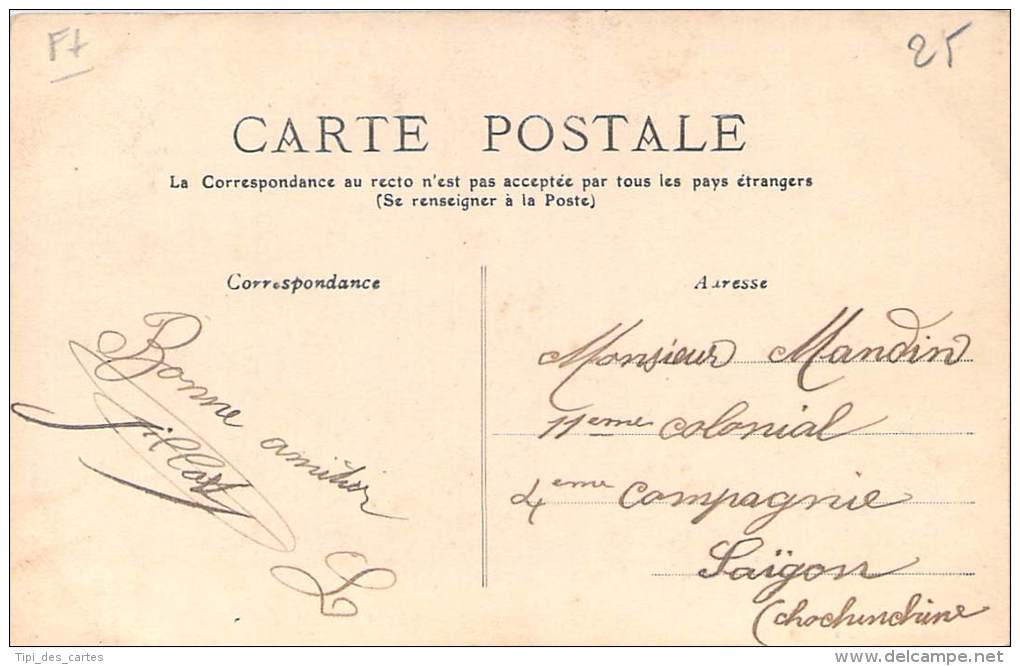 F+
25
CARTE POSTALE
La Correspondance au recto n'est pas acceptée par tous les pays étrangers
(Se renseigner à la Poste)
Correspondance
Bonne amitier
L
Adresse
Monsieur Mandin
11eme colonial
4eme Compagnie
Saïgon
(chochenchine
Tipi_des_cartes
www.delcampe.net